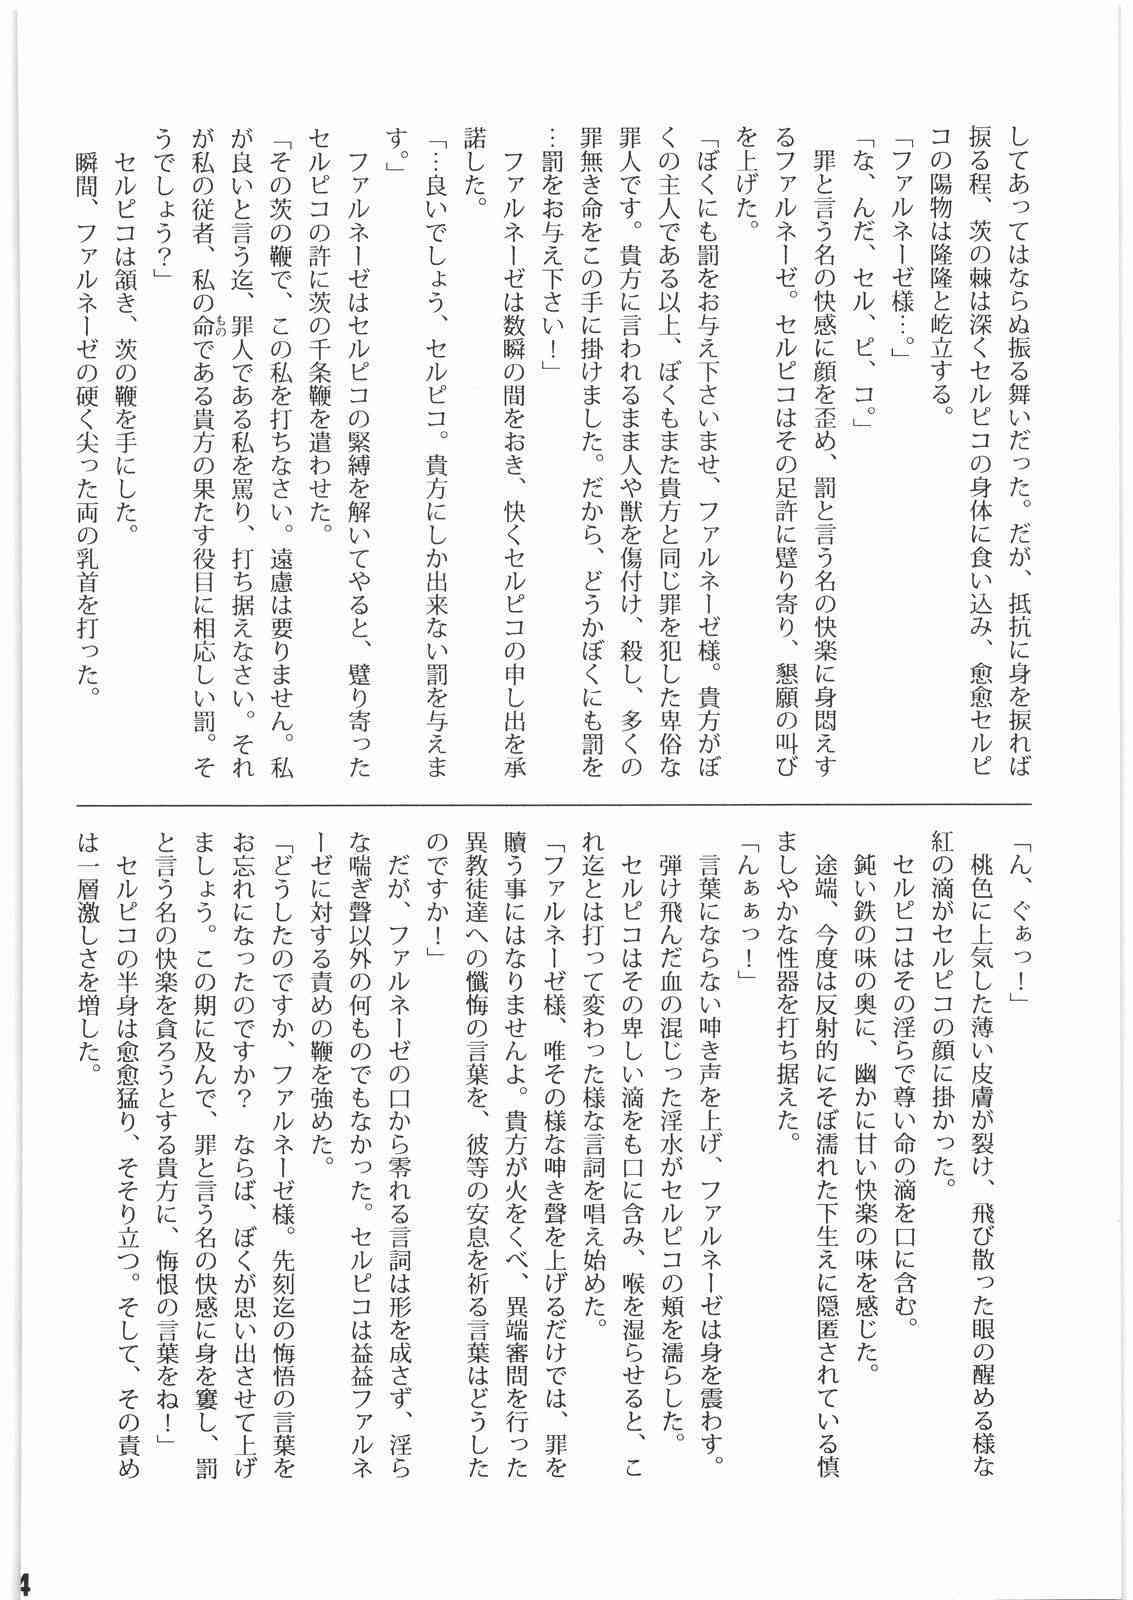 してあってはならぬ振る舞いだった。だが、抵抗に身を捩れば
捩る程、茨の棘は深くセルピコの身体に食い込み、愈愈セルピ
コの陽物は隆隆と屹立する。
「ファルネーゼ様…。」
「な、んだ、セル、ピ、コ。」
罪と言う名の快感に顔を歪め、罰と言う名の快楽に身悶えす
るファルネーゼ。セルピコはその足許に躄り寄り、懇願の叫び
を上げた。
「ぼくにも罰をお与え下さいませ、ファルネーゼ様。貴方がぼ
くの主人である以上、ぼくもまた貴方と同じ罪を犯した卑俗な
罪人です。貴方に言われるまま人や獣を傷付け、殺し、多くの
罪無き命をこの手に掛けました。だから、どうかぼくにも罰を
…罰をお与え下さい！」
ファルネーゼは数瞬の間をおき、快くセルピコの申し出を承
諾した。
「…良いでしょう、セルピコ。貴方にしか出来ない罰を与えま
す。」
ファルネーゼはセルピコの緊縛を解いてやると、躄り寄った
セルピコの許に茨の千条鞭を遣わせた。
「その茨の鞭で、この私を打ちなさい。遠慮は要りません。私
が良いと言う迄、罪人である私を罵り、打ち据えなさい。それ
が私の従者、私の命（もの）である貴方の果たす役目に相応しい罰。そ
うでしょう？」
セルピコは頷き、茨の鞭を手にした。
瞬間、ファルネーゼの硬く尖った両の乳首を打った。
「ん、ぐぁっ！」
桃色に上気した薄い皮膚が裂け、飛び散った眼の醒める様な
紅の滴がセルピコの顔に掛かった。
セルピコはその淫らで尊い命の滴を口に含む。
鈍い鉄の味の奥に、幽かに甘い快楽の味を感じた。
途端、今度は反射的にそぼ濡れた下生えに隠匿されている慎
ましやかな性器を打ち据えた。
「んぁぁっ！」
言葉にならない呻き声を上げ、ファルネーゼは身を震わす。
弾け飛んだ血の混じった淫水がセルピコの頬を濡らした。
セルピコはその卑しい滴をも口に含み、喉を湿らせると、こ
れ迄とは打って変わった様な言詞を唱え始めた。
「ファルネーゼ様、唯その様な呻き聲を上げるだけでは、罪を
贖う事にはなりませんよ。貴方が火をくべ、異端審問を行った
異教徒達への懺悔の言葉を、彼等の安息を祈る言葉はどうした
のですか！」
だが、ファルネーゼの口から零れる言詞は形を成さず、淫ら
な喘ぎ聲以外の何ものでもなかった。セルピコは益益ファルネ
ーゼに対する責めの鞭を強めた。
「どうしたのですか、ファルネーゼ様。先刻迄の悔悟の言葉を
お忘れになったのですか？　ならば、ぼくが思い出させて上げ
ましょう。この期に及んで、罪と言う名の快感に身を窶し、罰
と言う名の快楽を貪ろうとする貴方に、悔恨の言葉をね！」
セルピコの半身は愈愈猛り、そそり立つ。そして、その責め
は一層激しさを増した。
4